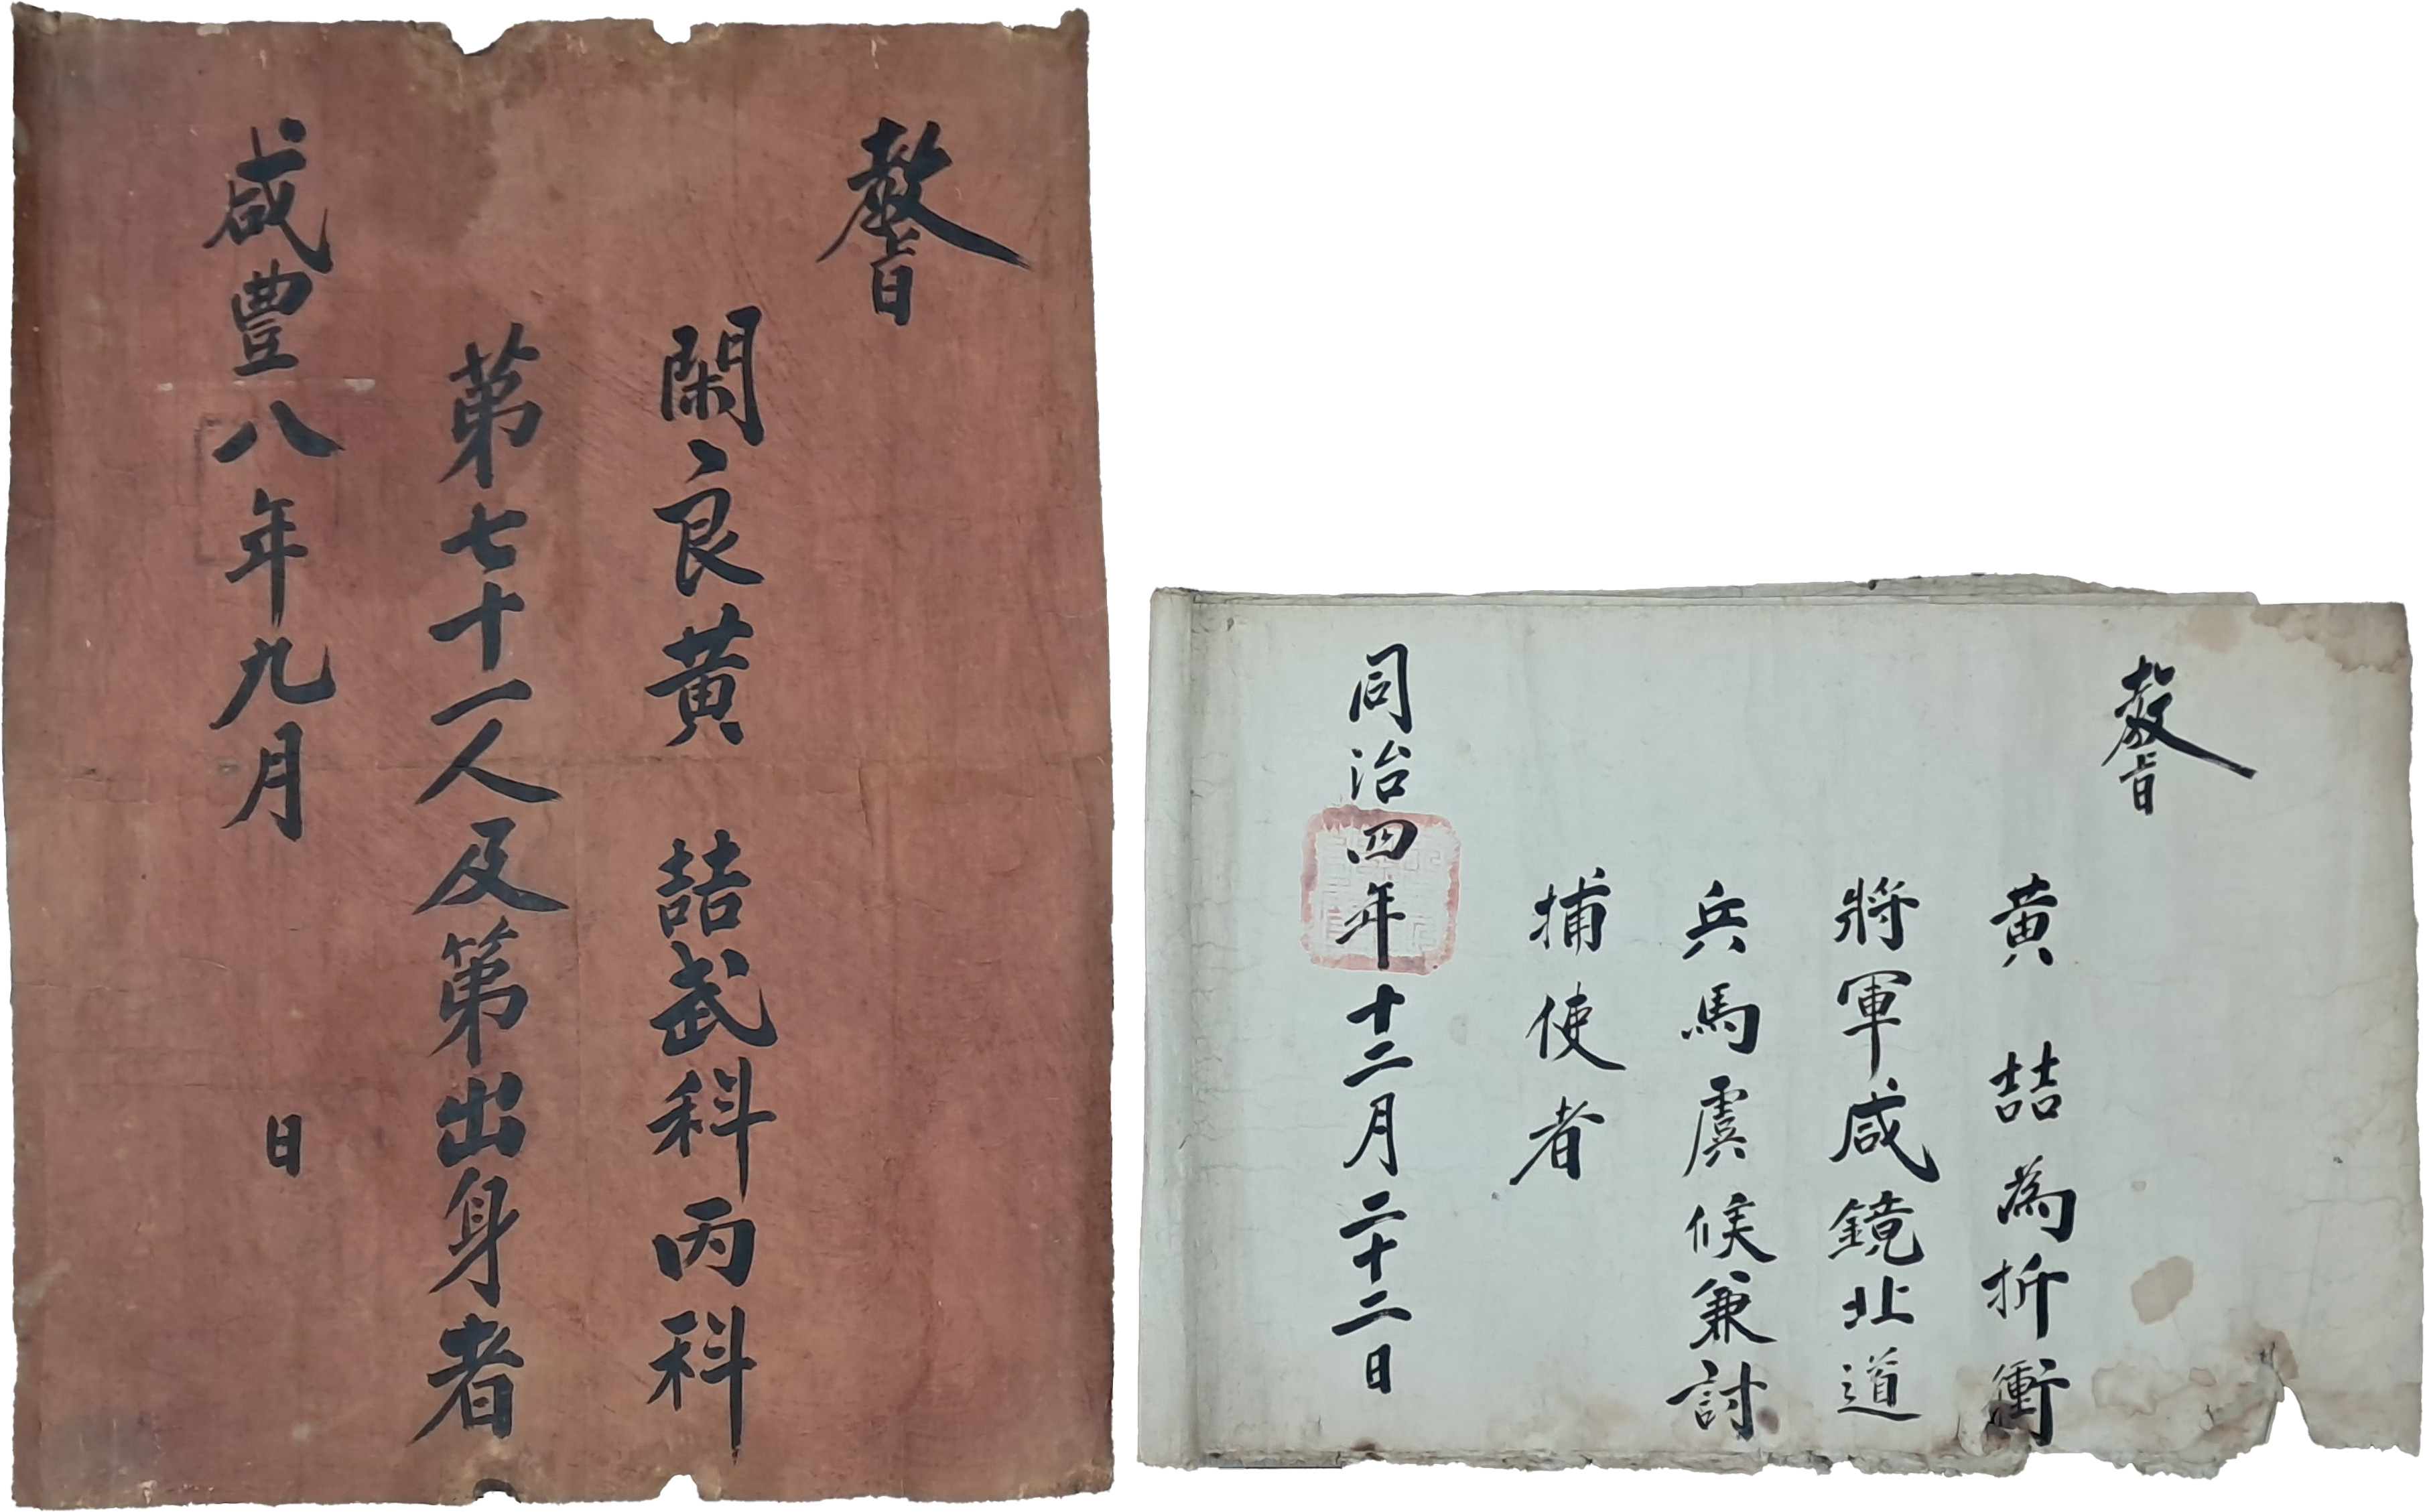 教旨
閑良黄 喆武科丙科
苐七十一人及第出身者
咸豊八年九月 日
教旨
黄 喆為折衝
將軍咸鏡北道
兵馬虞候兼討
捕使者
同治四年十二月二十二日